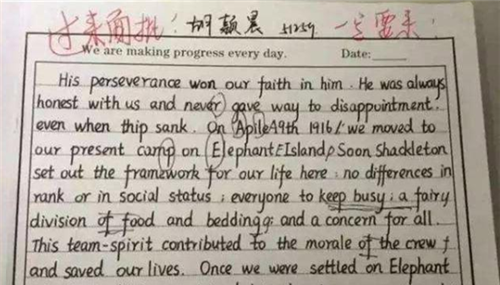 过来面批! 胡颖晨 51259 一定要来!
We are making progress every day. Date:
His perseverance won our faith in him. He was always
honest with us and never gave way to disappointment,
even when thip sank. On Apile A9th 1916/ we moved to
our present camp on Elephant E Island/ Soon Shackleton
set out the framework for our life here: no differences in
rank or in social status; everyone to keep busy; a fairy
division of food and bedding; and a concern for all.
This team-spirit contributed to the morale of the crew
and saved our lives. Once we were settled on Elephant